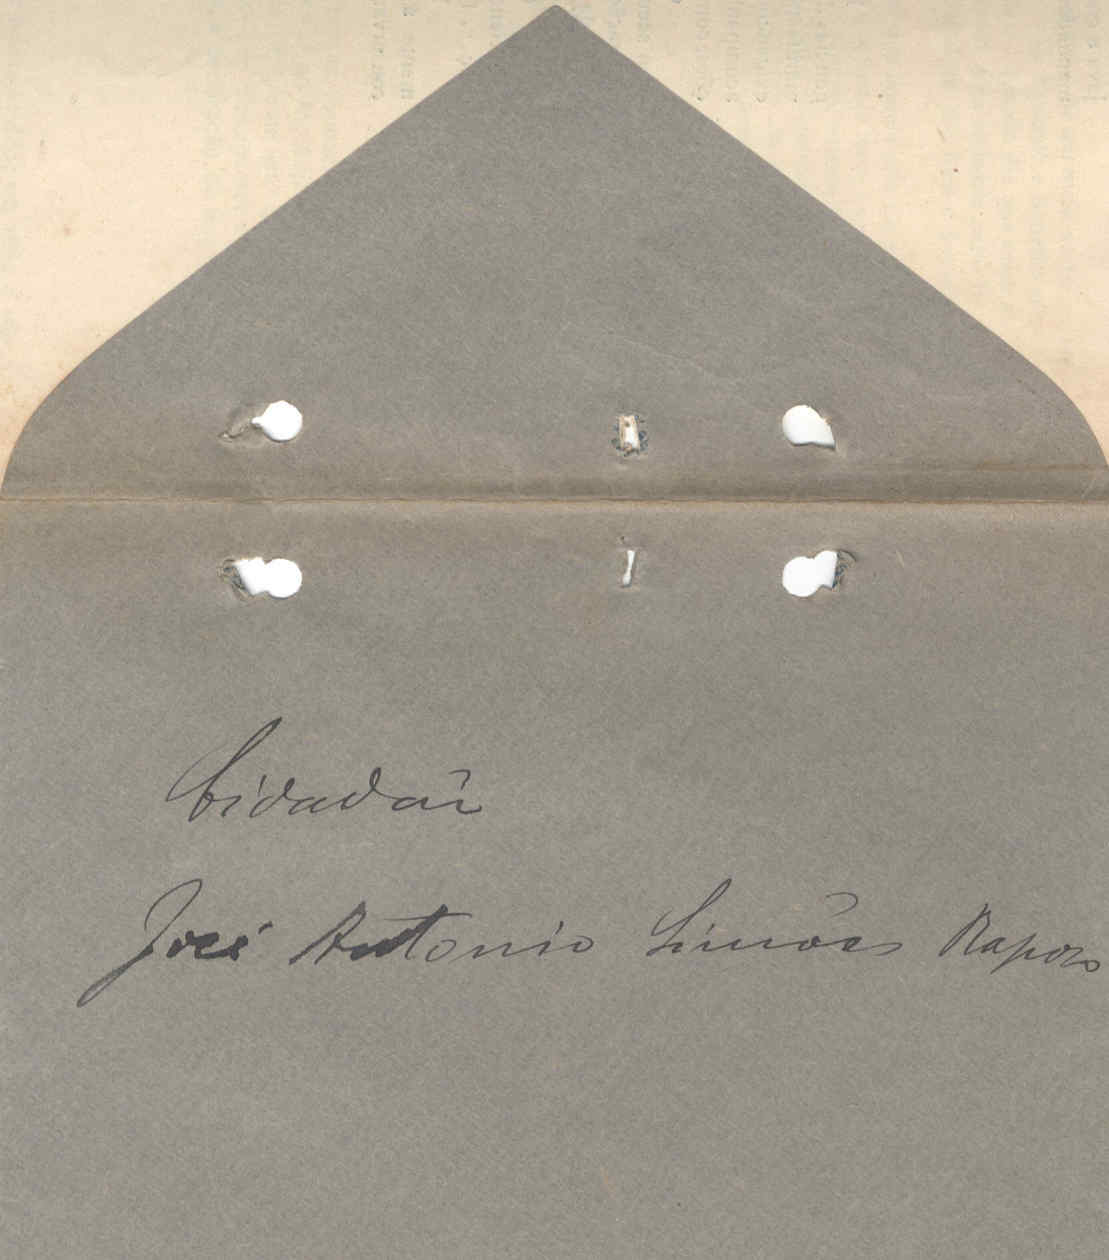 Cidadão
José Antonio Simões Raposo